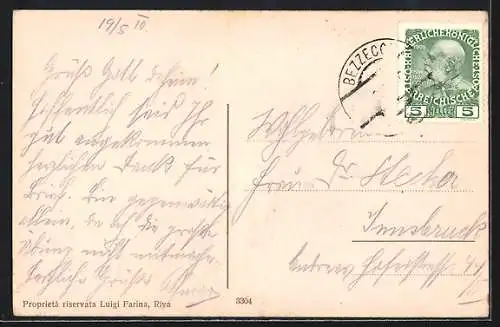 19/5 10.
Grüß Gott daheim!
Hoffentlich seid Ihr
gut angekommen
herzlichen Dank für
Brief. Bin gegenwärtig
allein, da ich die große
Übung nicht mitmache
Herzliche Grüße
Proprietà riservata Luigi Farina, Riva
3304
BEZZECC
KAISERLICHE KÖNIGLICHE
ÖSTERREICHISCHE
5 5
Wohlgeboren
Frau Dr
Innsbruck
Andreas Hoferstraße 44